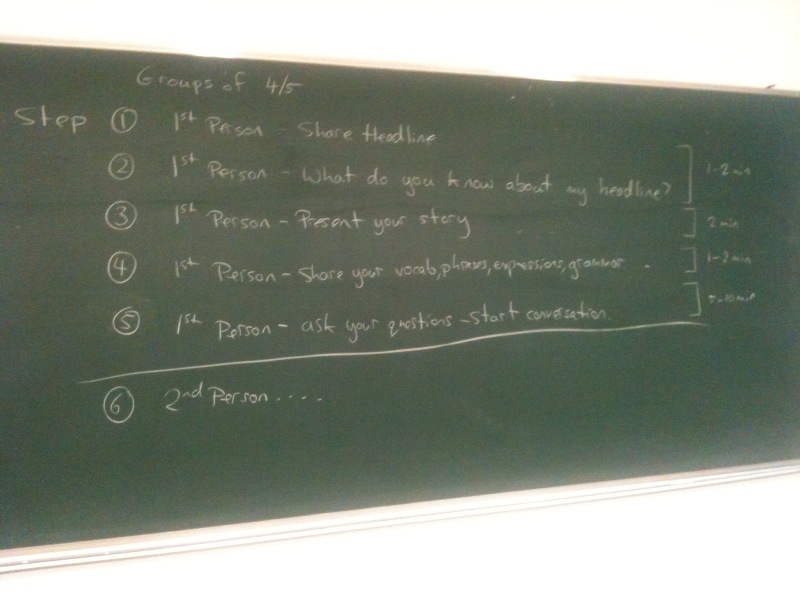 Groups of 4/5
Step ① 1st Person - Share Headline
② 1st Person - What do you know about my headline? 1-2 min
③ 1st Person - Present your story 2 min
④ 1st Person - Share your vocab, phrases, expressions, grammar 1-2 min
⑤ 1st Person - ask your questions - start conversation. 5-10 min
⑥ 2nd Person .....